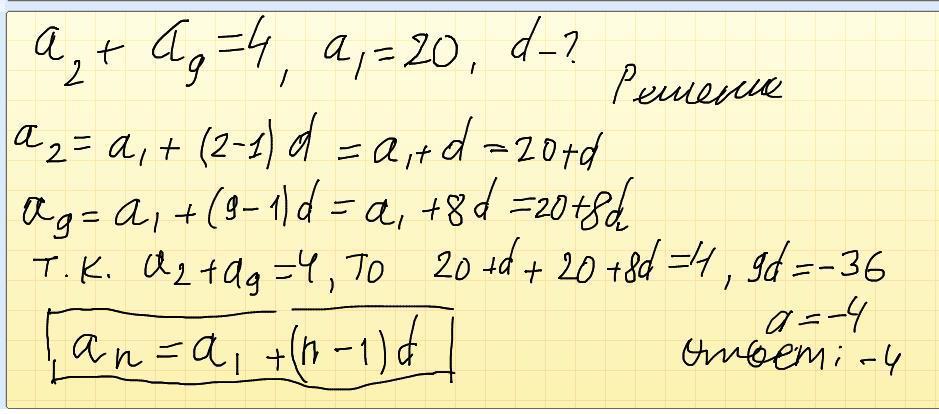 a₂ + a₉ = 4, a₁ = 20, d - ?
Решение
a₂ = a₁ + (2-1) d = a₁ + d = 20 + d
a₉ = a₁ + (9-1) d = a₁ + 8d = 20 + 8d
т.к. a₂ + a₉ = 4, то 20 + d + 20 + 8d = 4, 9d = -36
a = -4
aₙ = a₁ + (n - 1) d
Ответ: -4